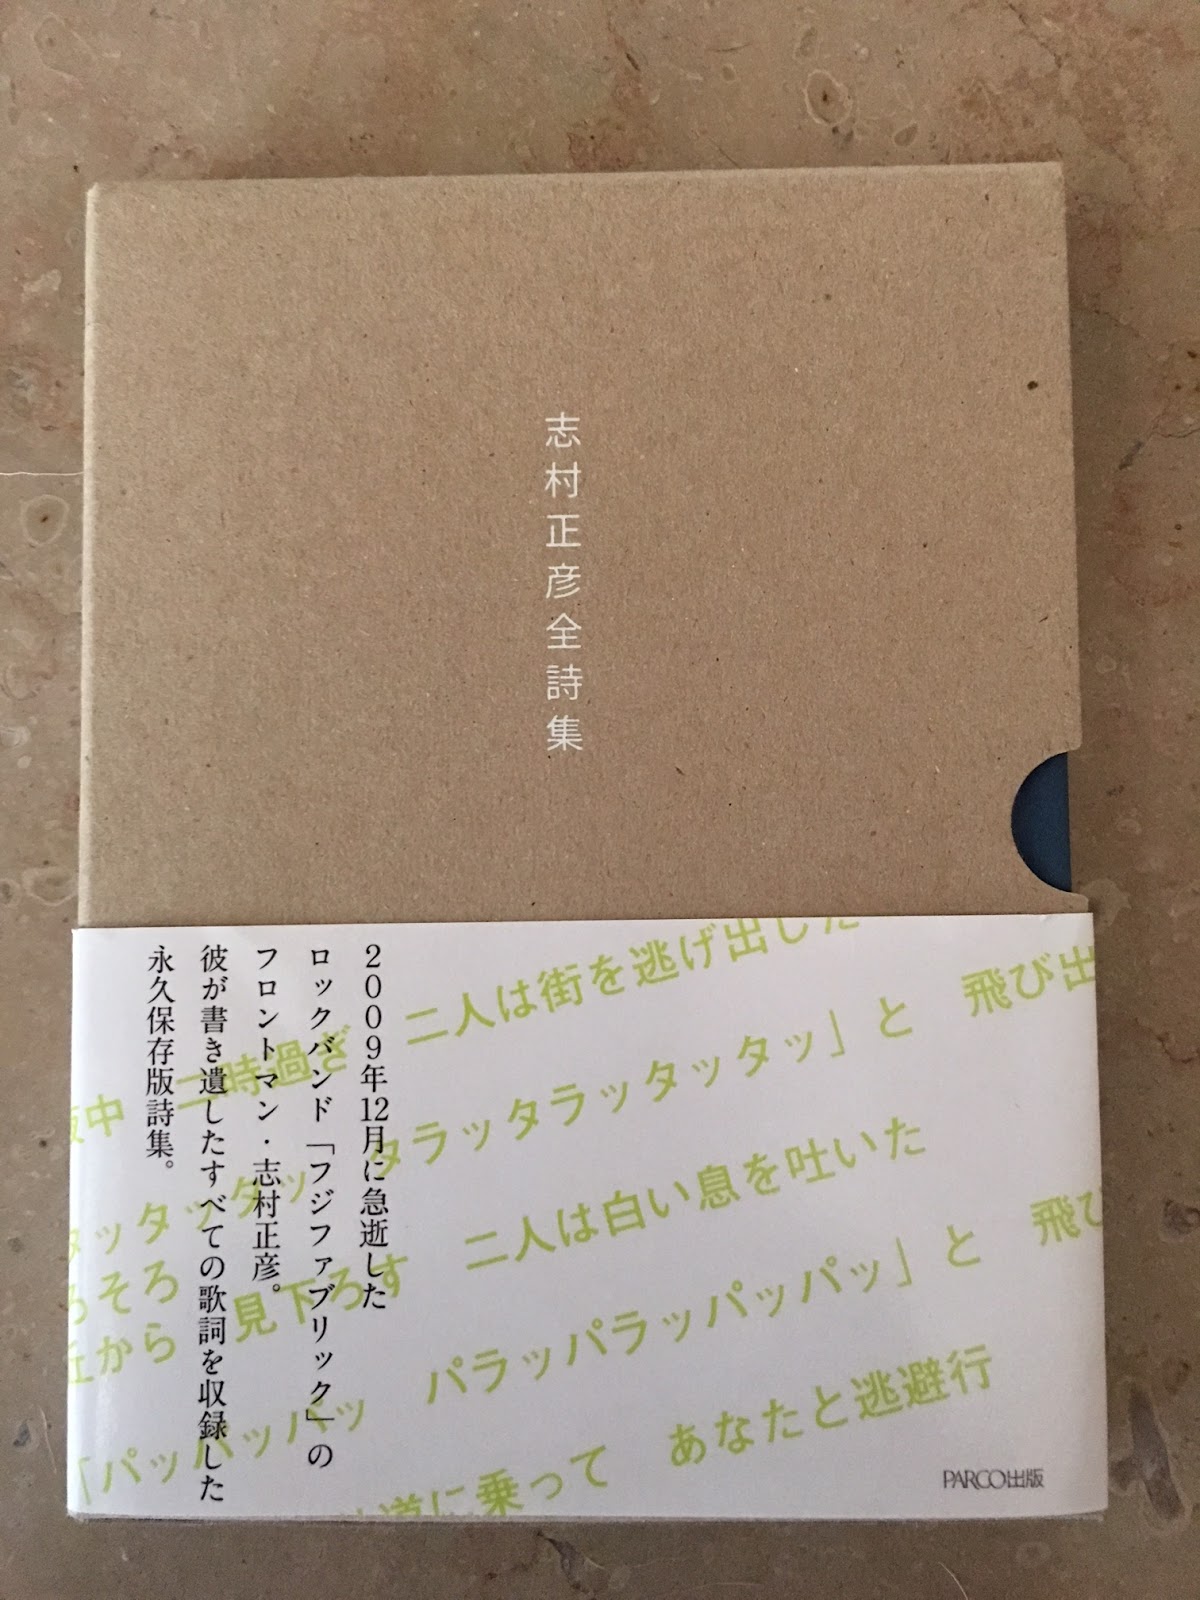 志村正彦全詩集
2009年12月に急逝した
ロックバンド「フジファブリック」の
フロントマン・志村正彦。
彼が書き遺したすべての歌詞を収録した
永久保存版詩集。
二人は街を逃げ出した
中 二時過ぎ タラッタラッタッタッ」と 飛び出
タッタッタッ 二人は白い息を吐いた
ろそろ
丘から 見下ろす パラッパラッパッパッ」と 飛び
「パッパッパッ あなたと逃避行
道に乗って
PARCO出版